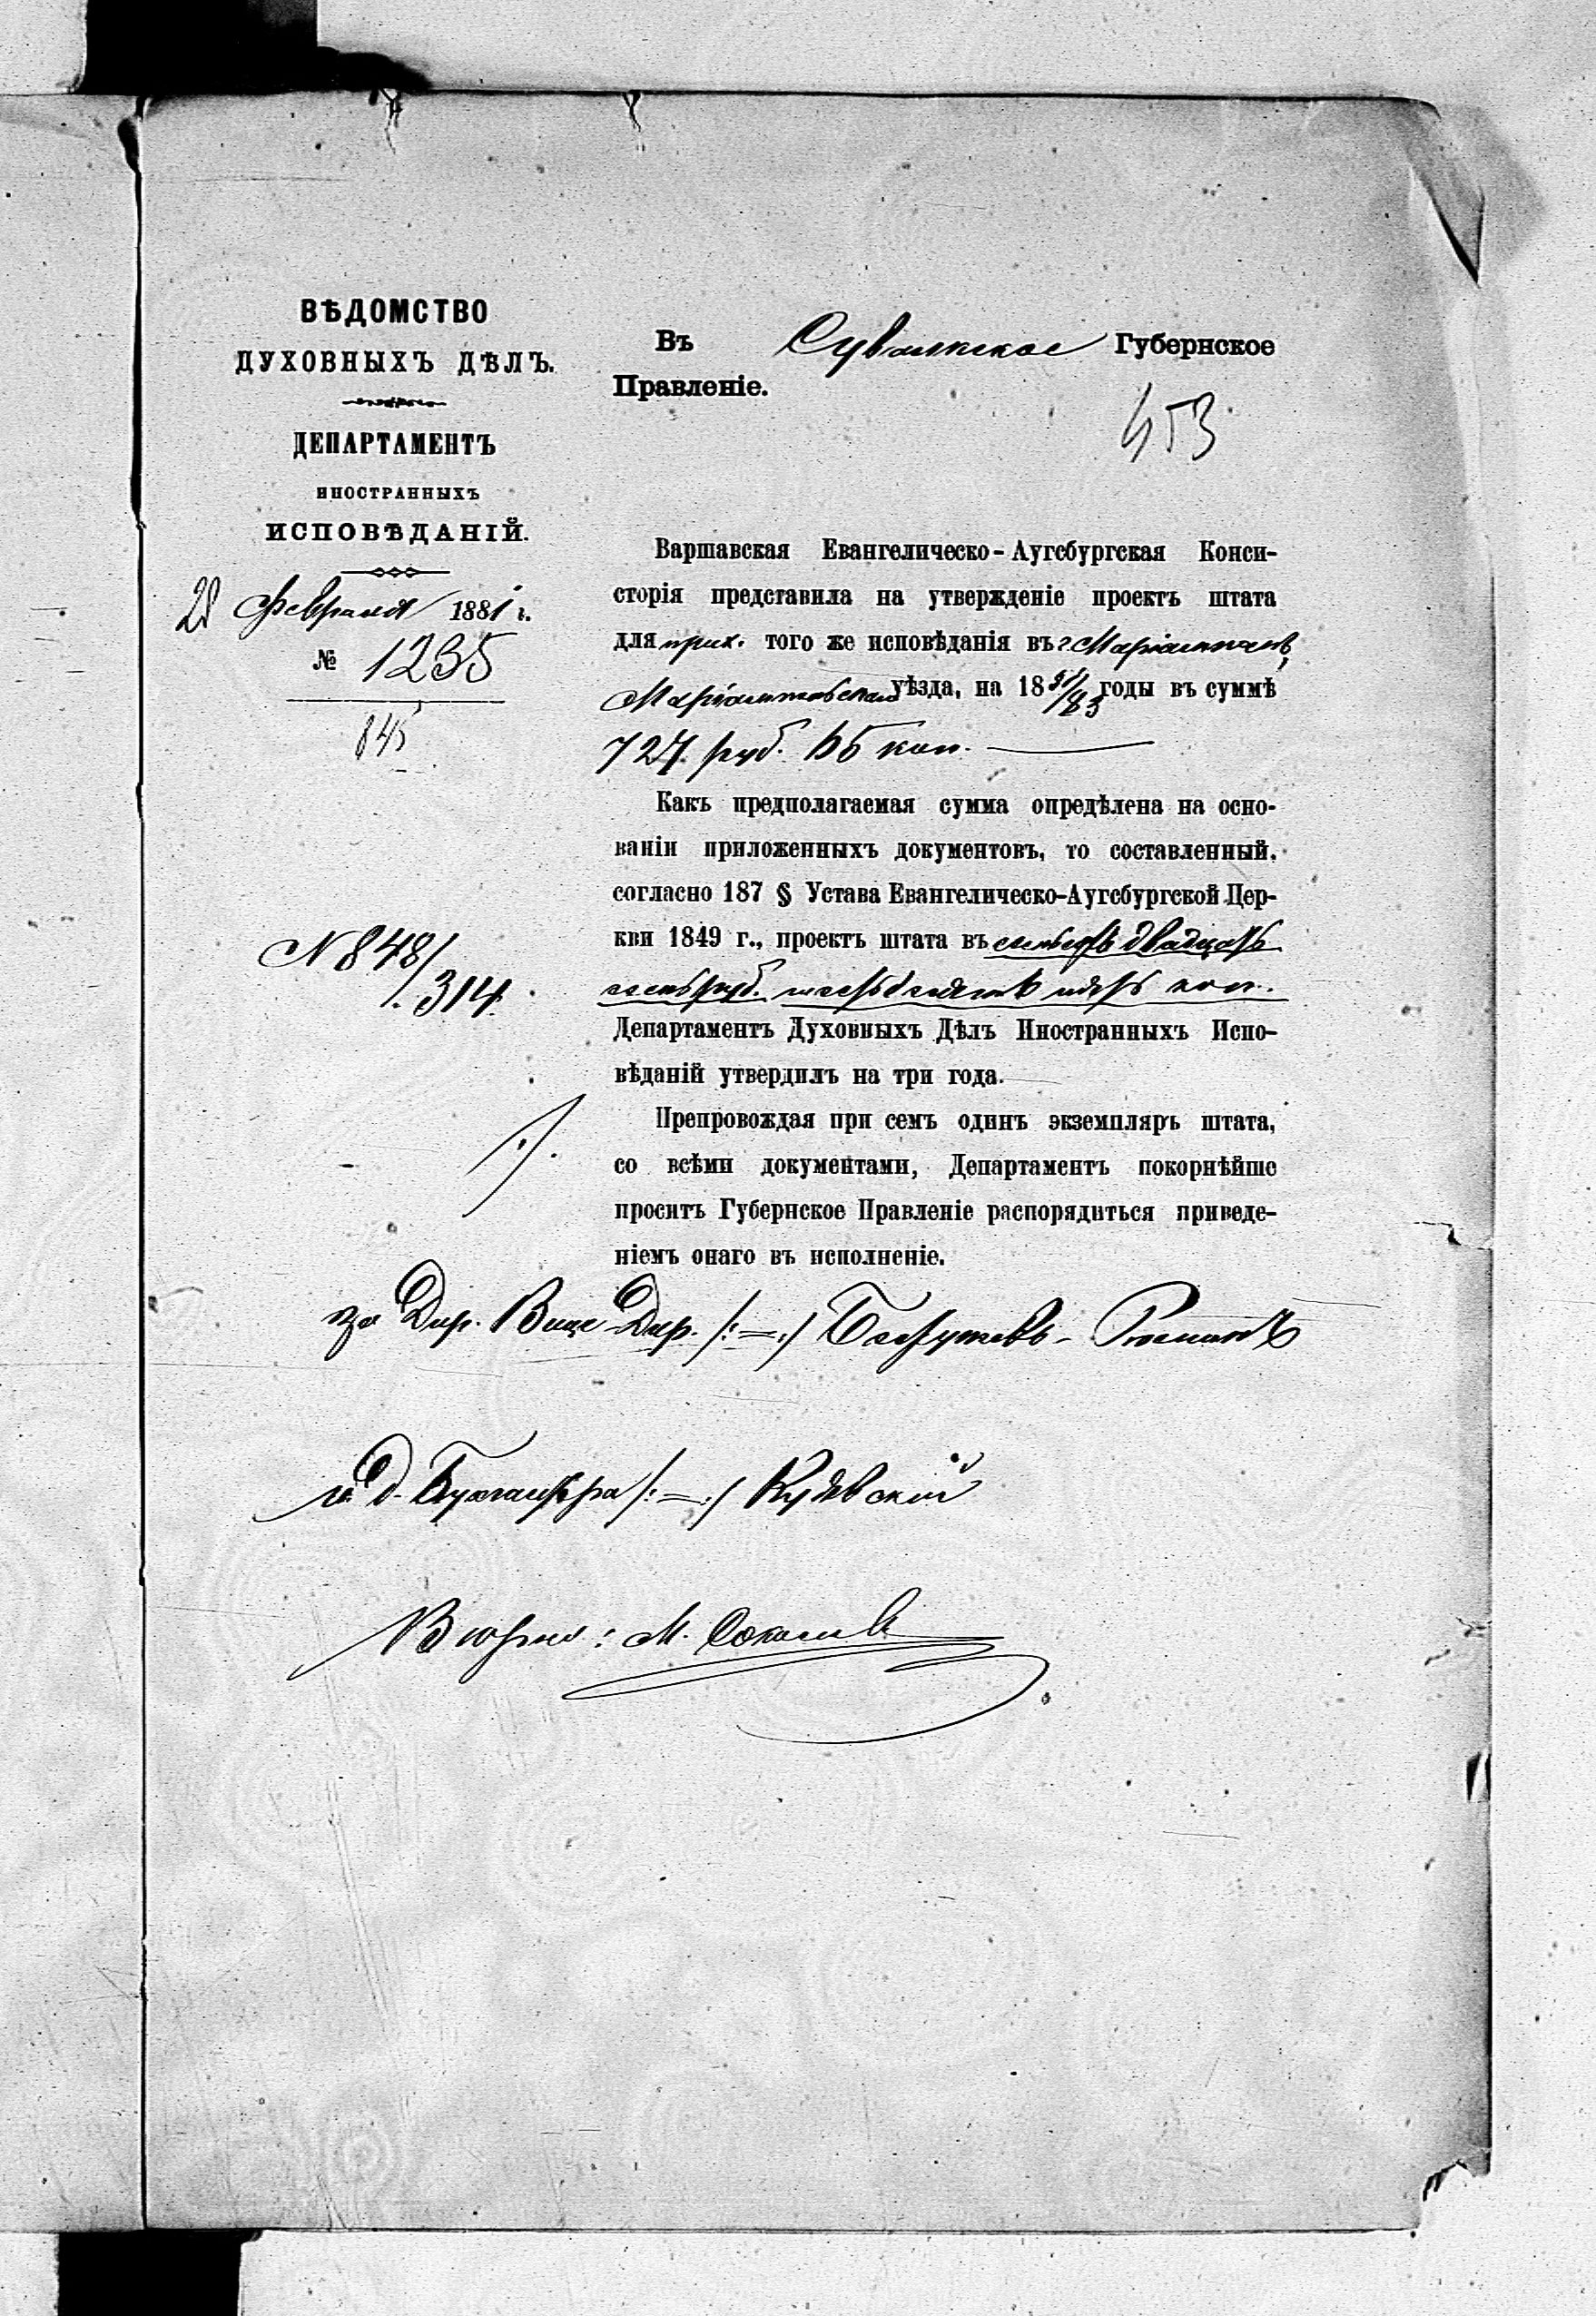 ВѢДОМСТВО
ДУХОВНЫХЪ ДѢЛЪ.
ДЕПАРТАМЕНТЪ
ИНОСТРАННЫХЪ
ИСПОВѢДАНІЙ.
28 Февраля 1881 г.
№ 1235
845
N 848/314.
Въ Сувалкское Губернское
Правленіе.
453
Варшавская Евангелическо-Аугсбургская Конси-
сторія представила на утвержденіе проектъ штата
для прих. того же исповѣданія въ г. Маріамполѣ,
Маріампольскаго уѣзда, на 1881/83 годы въ суммѣ
727 руб. 65 коп.
Какъ предполагаемая сумма опредѣлена на осно-
ваніи приложенныхъ документовъ, то составленный,
согласно 187 § Устава Евангелическо-Аугсбургской Цер-
кви 1849 г., проектъ штата въ семьсотъ двадцать
семь руб. шестьдесятъ пять коп.
Департаментъ Духовныхъ Дѣлъ Иностранныхъ Испо-
вѣданій утвердилъ на три года.
Препровождая при семъ одинъ экземпляръ штата,
со всѣми документами, Департаментъ покорнѣйше
проситъ Губернское Правленіе распорядиться приведе-
ніемъ онаго въ исполненіе.
за Дир. Вице-Дир. /:=:/ Бестужевъ-Рюминъ
и. д. Бухгалтера /:=:/
Вѣрно: М. Соколовъ